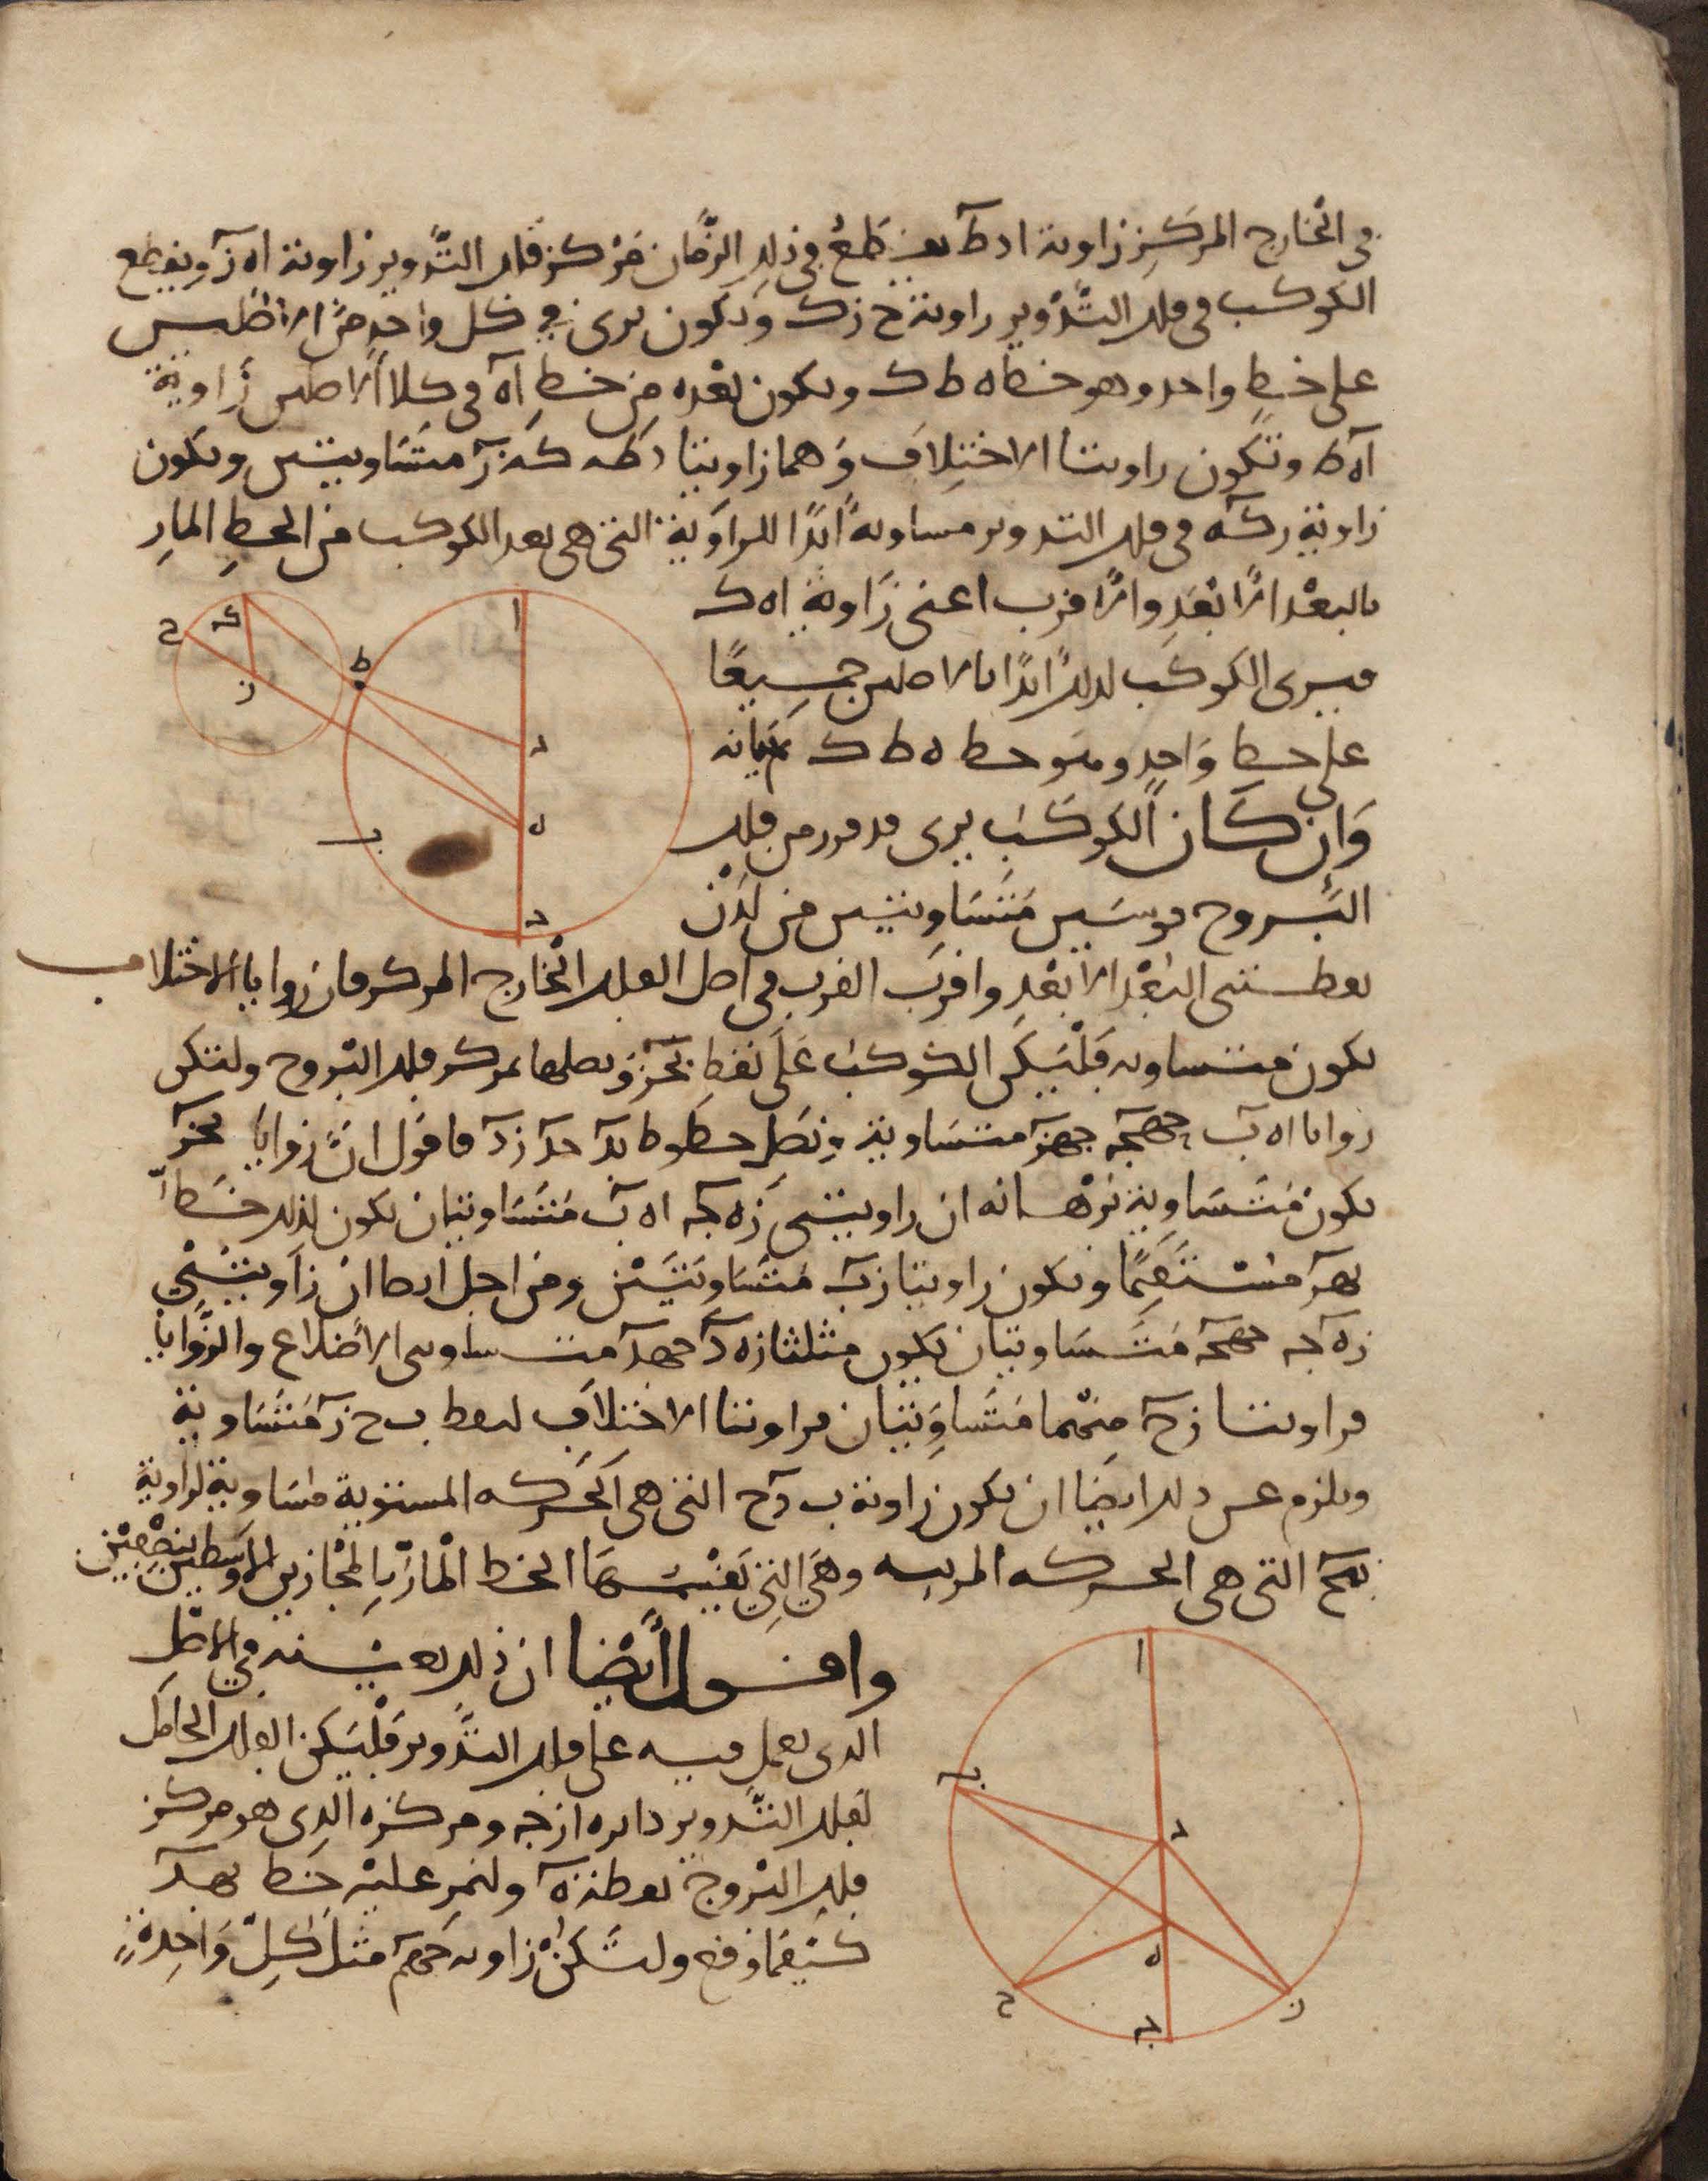 في الخارج المركز زاوية ا د ط يقطع في ذلك الزمان مركز فلك التدوير زاوية ا ه ز ويقطع
الكوكب في فلك التدوير زاوية ح ز ك ويكون يرى في كل واحد من الاصلين
على خط واحد وهو خط ه ط ك ويكون بعده من خط ا ه في كلا الاصلين زاوية
ا ه ط وتكون زاويتا الاختلاف وهما زاويتا د ط ه ك ه ز متساويتين وتكون
زاوية ز ك ه في فلك التدوير مساوية ابدا للزاوية التي هي بعد الكوكب من الخط المار
بالبعد الابعد والاقرب اعني زاوية ا ه ك
فيرى الكوكب لذلك ابدا بالاصلين جميعا
على خط واحد وهو خط ه ط ك
وان كان الكوكب يرى قد فرز من فلك
البروج قوسين متساويتين من لدن
نقطتي البعد الابعد واقرب القرب في اصل الفلك الخارج المركز فان زوايا الاختلاف
تكون متساوية فليكن الكوكب على نقط ب ح ز ونصلها بمركز فلك البروج ولتكن
زوايا ا ه ب ح ه ج ج ه ز متساوية ونصل خطوط ب د ح د ز د فاقول ان زوايا ب ح ز
تكون متساوية برهانه ان زاويتي ز ه ج ا ه ب متساويتان يكون لذلك خط
ب ه ز مستقيما وتكون زاويتا ز ب متساويتين ومن اجل ايضا ان زاويتي
ز ه ج ح ه ج متساويتان يكون مثلثا ز ه د ح ه د متساويي الاضلاع والزوايا
فزاويتا ز ح منهما متساويتان فزاويتا الاختلاف لنقط ب ح ز متساوية
ويلزم عن ذلك ايضا ان تكون زاوية ب د ح التي هي الحركة المستوية مساوية لزاوية
ب ه ح التي هي الحركة المرئية وهي التي يقسمها الخط المار بالمجازين الاوسطين بنصفين
واقول ايضا ان ذلك بعينه في الاصل
الذي يعمل فيه على فلك التدوير فليكن الفلك الحامل
لفلك التدوير دايرة ا ز ج ومركزه الذي هو مركز
فلك البروج نقطة ه ولنمر عليه خط ب ه د
كيفما وقع ولتكن زاوية ج ه ح مثل كل واحدة
ا
ط
ك
ح
ز
د
ه
ب
ج
ا
ب
د
ه
ح
ز
ج